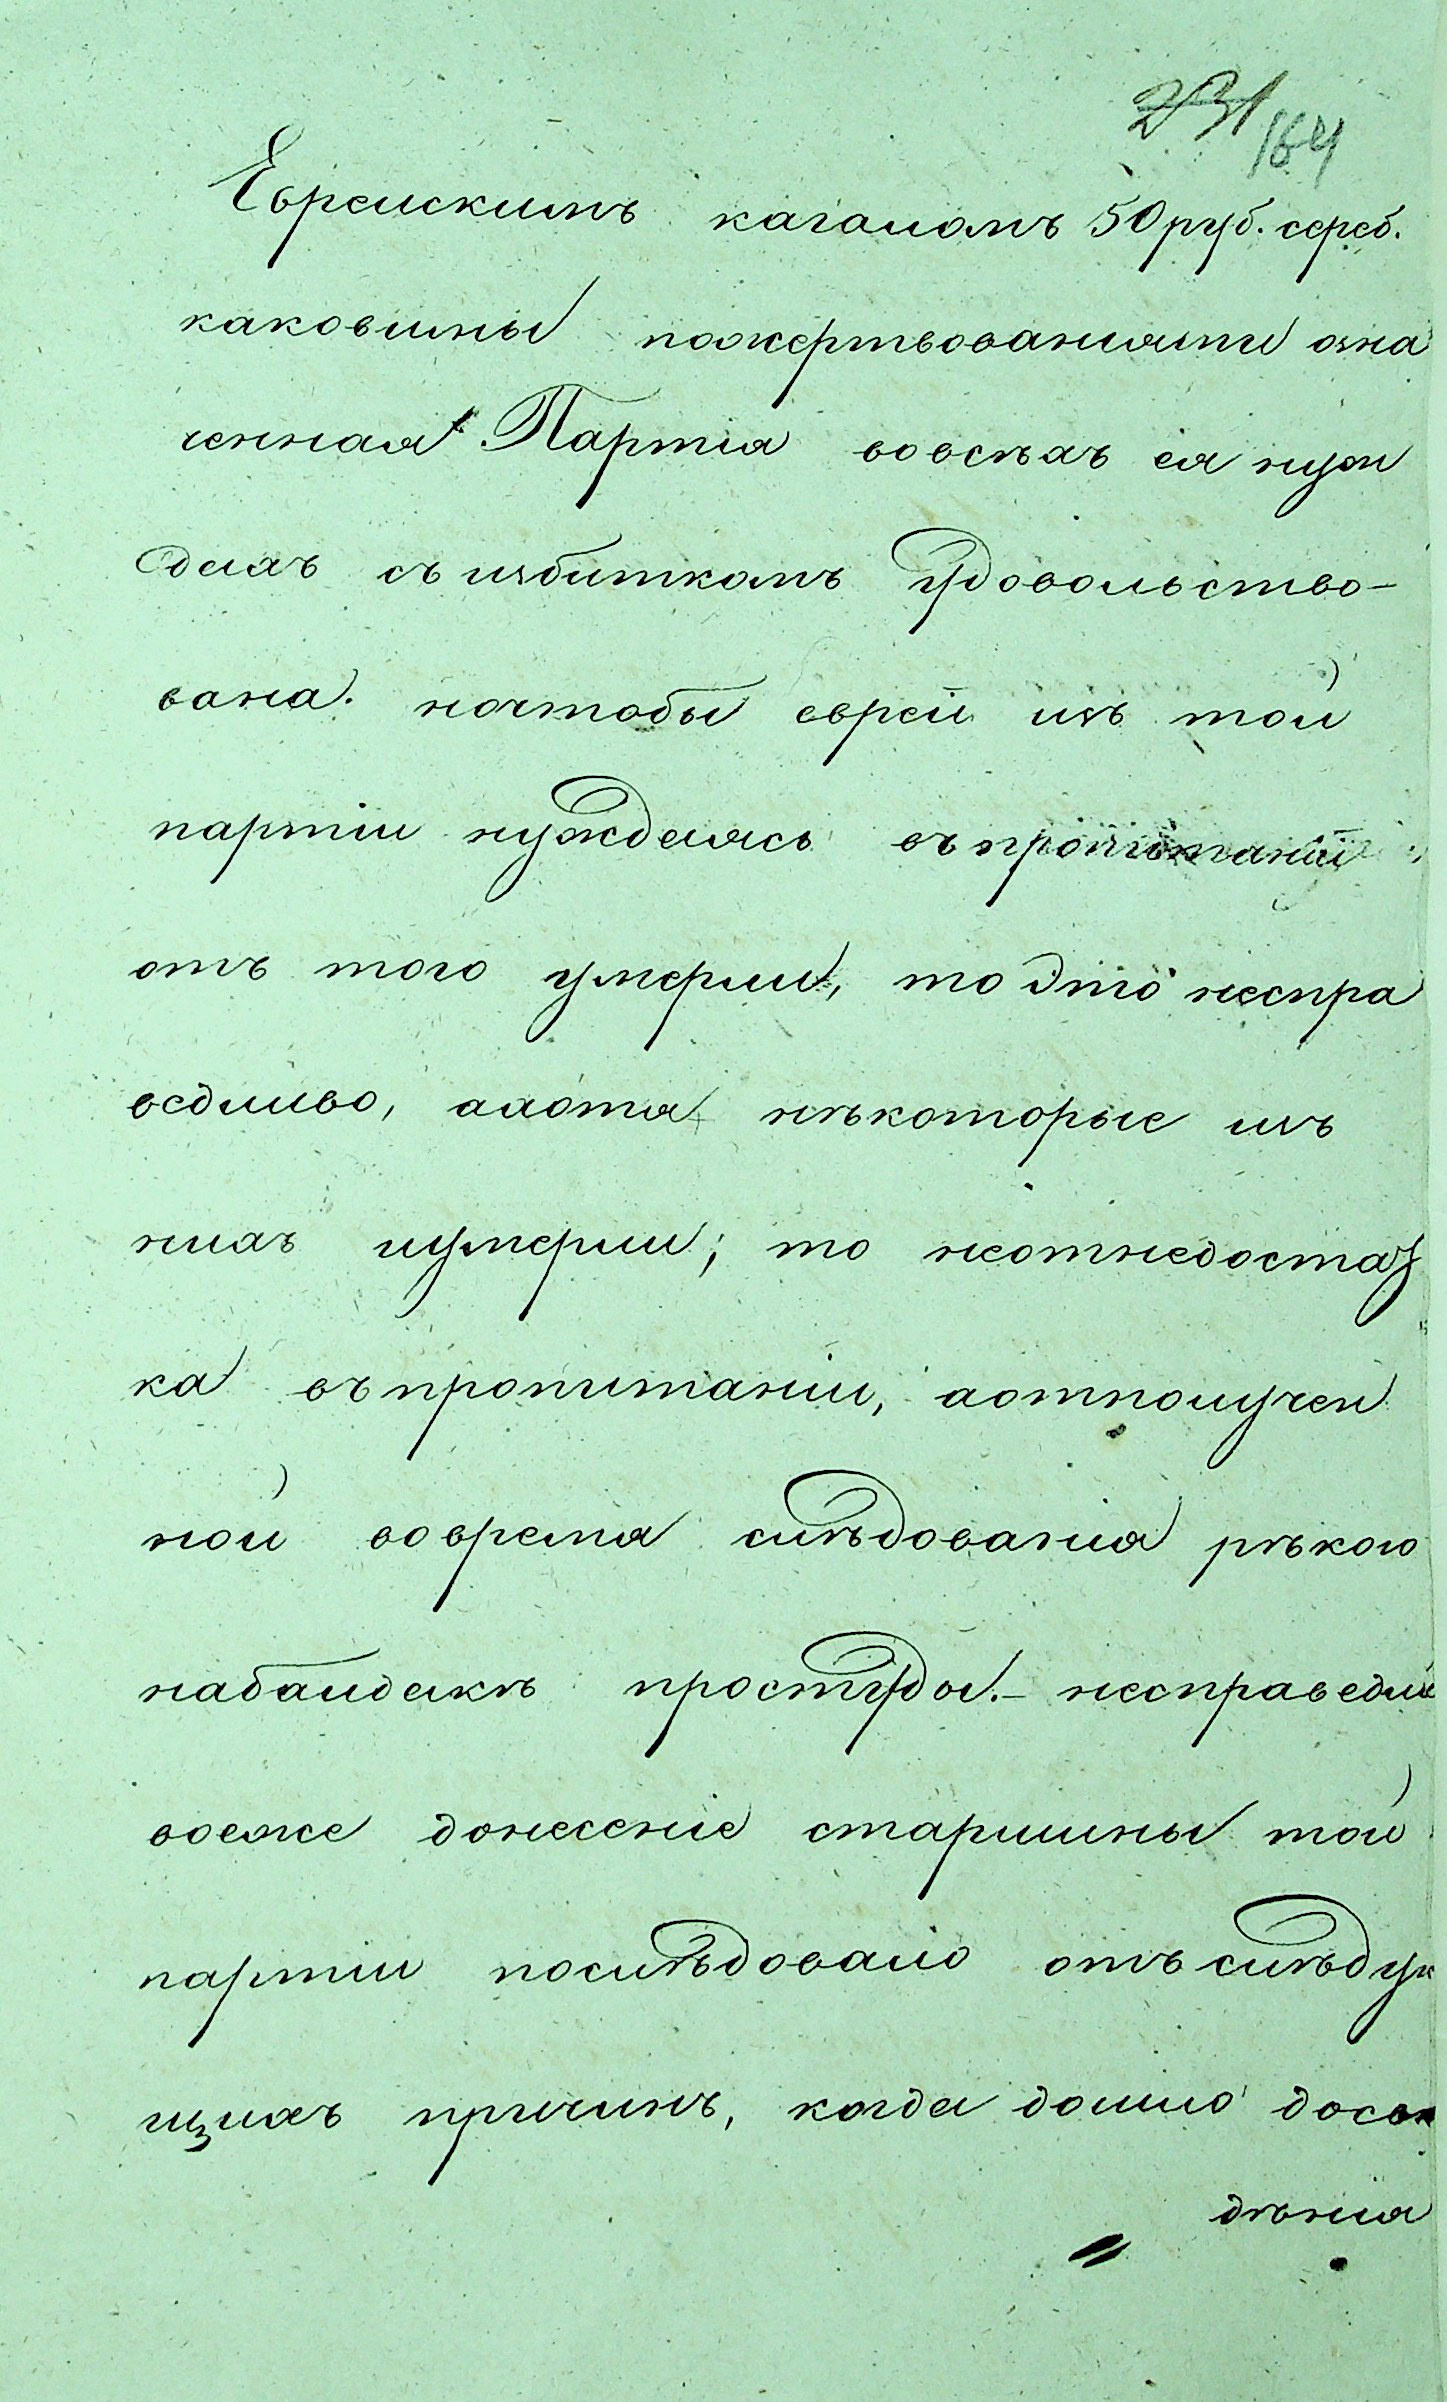 231
164
Еврейскимъ кагаломъ 50 руб. сереб.
каковыми пожертвованіями озна
ченная Партія вовсѣхъ ея нуж
дахъ съ избиткомъ удовольство-
вана. ночтобы евреи изъ той
партіи нуждаясь въ пропитаніи
отъ того умерли, то это неспра
ведливо, ахотя нѣкоторые изъ
нихъ иумерли; то неотнедостат
ка въпропитаніи, аотполучен
ной вовремя слѣдованія рѣкою
набайдакѣ простуды.- несправедли
воеже донесеніе старшины той
партіи послѣдовало отъ слѣдую
щихъ причинъ, когда дошло досвѣ
дѣнія